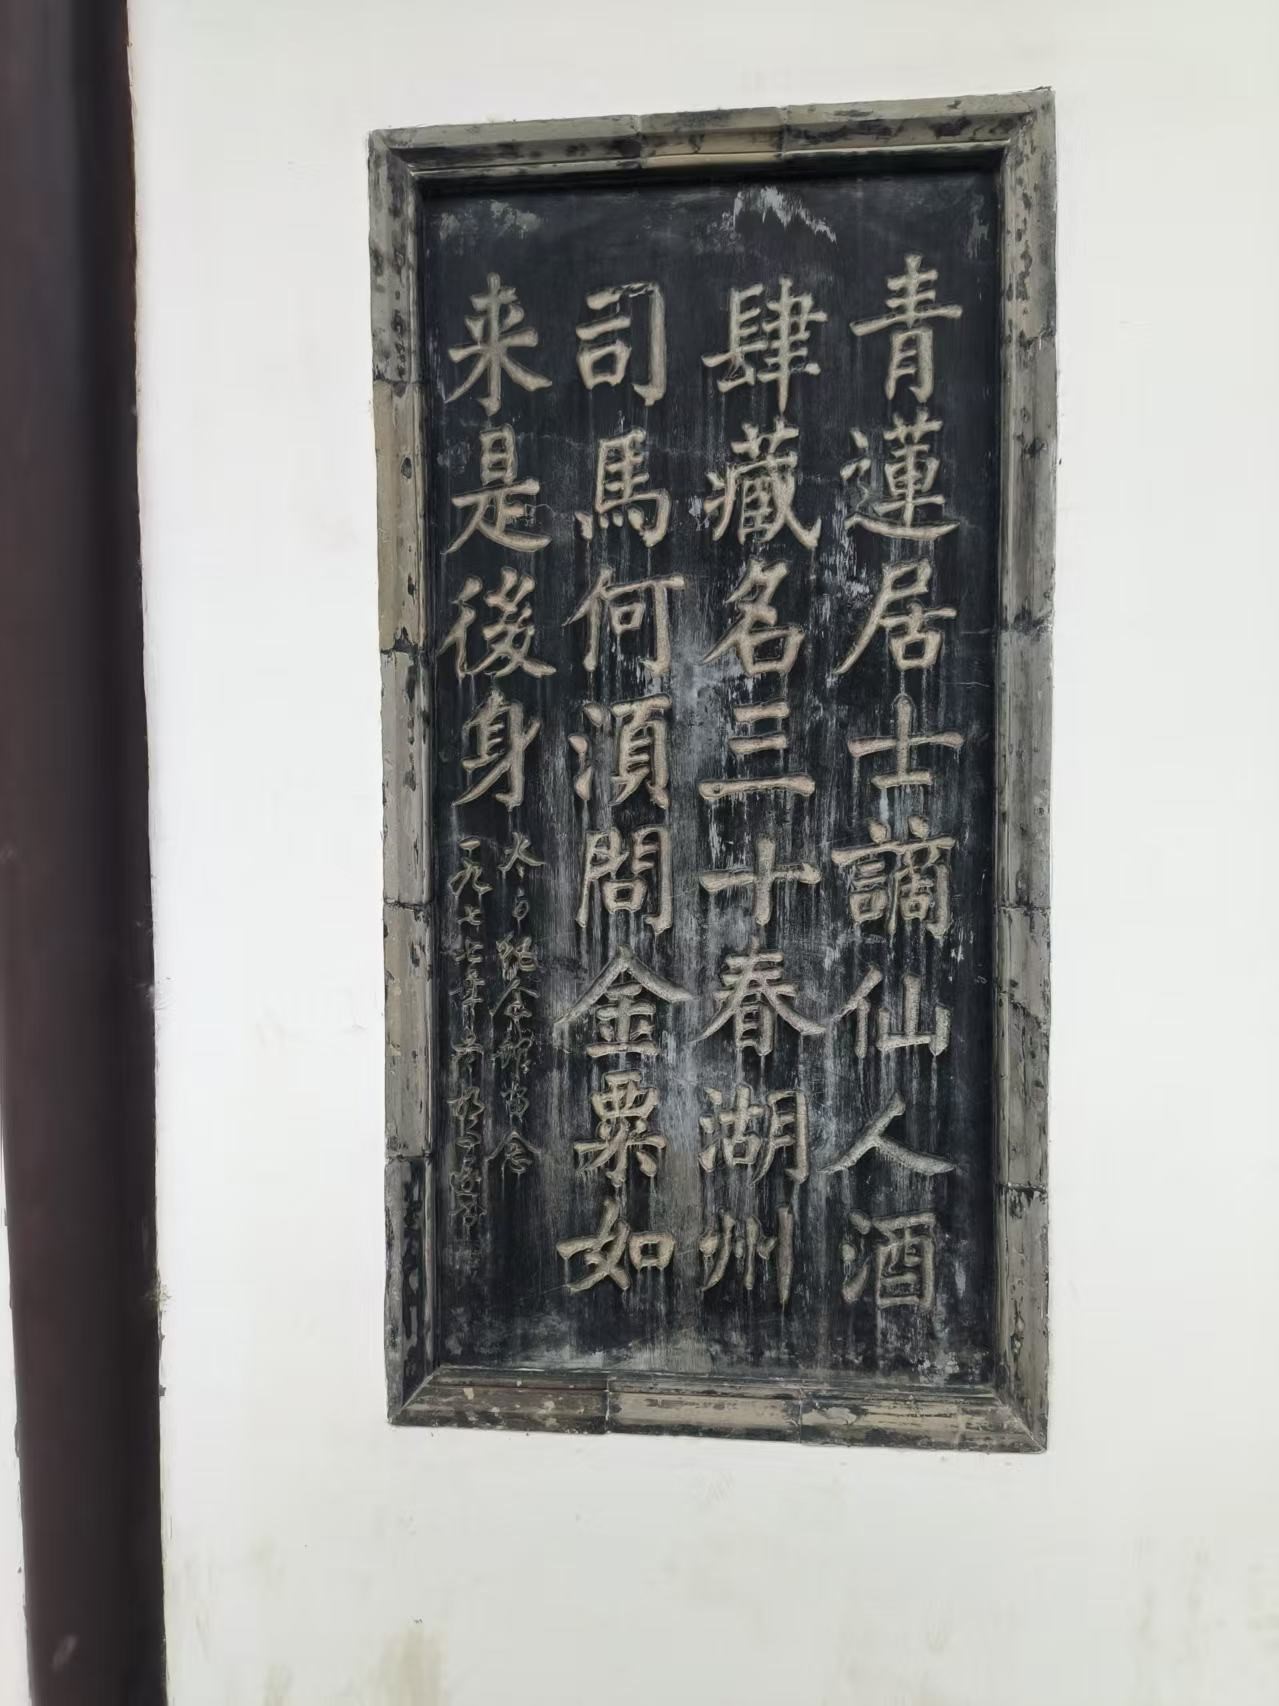 青蓮居士謫仙人酒
肆藏名三十春湖州
司馬何須問金粟如
来是後身
太白紀念館留念
一九七七年